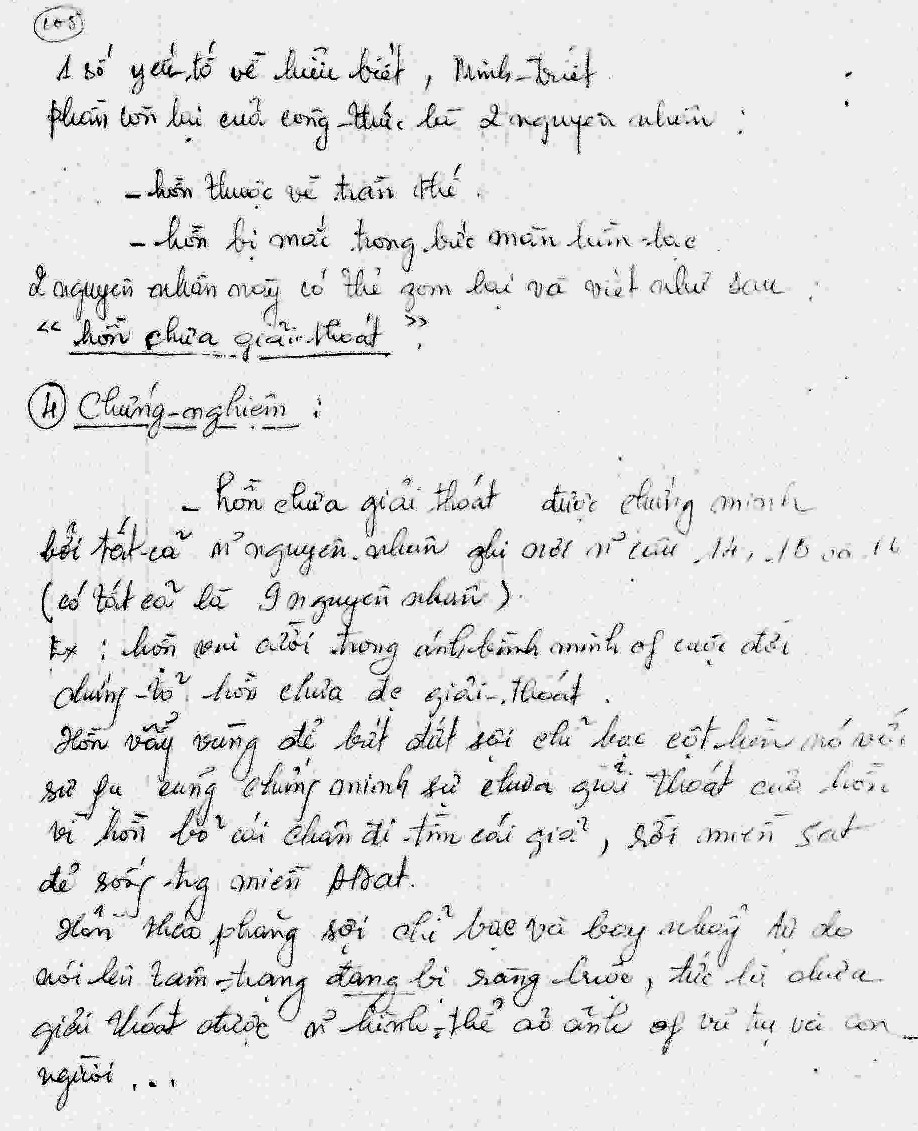 105
1 số yếu-tố về hiểu biết, Minh-Triết
phần còn lại của công-thức là 2 nguyên nhân :
- hồn thuộc về trần thế.
- hồn bị mất trong bức màn lầm-lạc.
2 nguyên nhân này có thể gom lại và viết như sau :
“ hồn chưa giải-thoát ”.
④ Chứng-nghiệm :
- hồn chưa giải thoát được chứng minh
bởi tất-cả n² nguyên-nhân ghi nơi n² câu 14, 15 và 16
(có tất cả là 9 nguyên nhân).
Ex : hồn vui cười trong ánh bình minh of cuộc đời
chứng-tỏ hồn chưa đc giải-thoát.
Hồn vẫy vùng để bứt đứt sợi chỉ bạc cột hồn nó với
sư fụ cũng chứng minh sự chưa giải thoát của hồn
vì hồn bỏ cái chân đi tìm cái giả, rời miền Sat
để sống tng miền Asat.
Hồn tháo phăng sợi chỉ bạc và bay nhảy tự do
nói lên tâm-trạng đang bị ràng buộc, tức là chưa
giải thoát được n² hình-thể ảo ảnh of vũ trụ và con
người ...